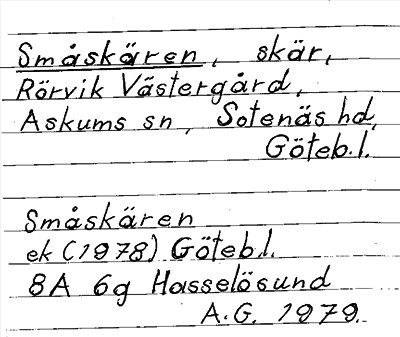 Småskären, skär,
Rörvik Västergård,
Askums sn, Sotenäs hd,
Göteb.l.
Småskären
ek (1978) Göteb.l.
8A 6g Hasselösund
A.G. 1979.